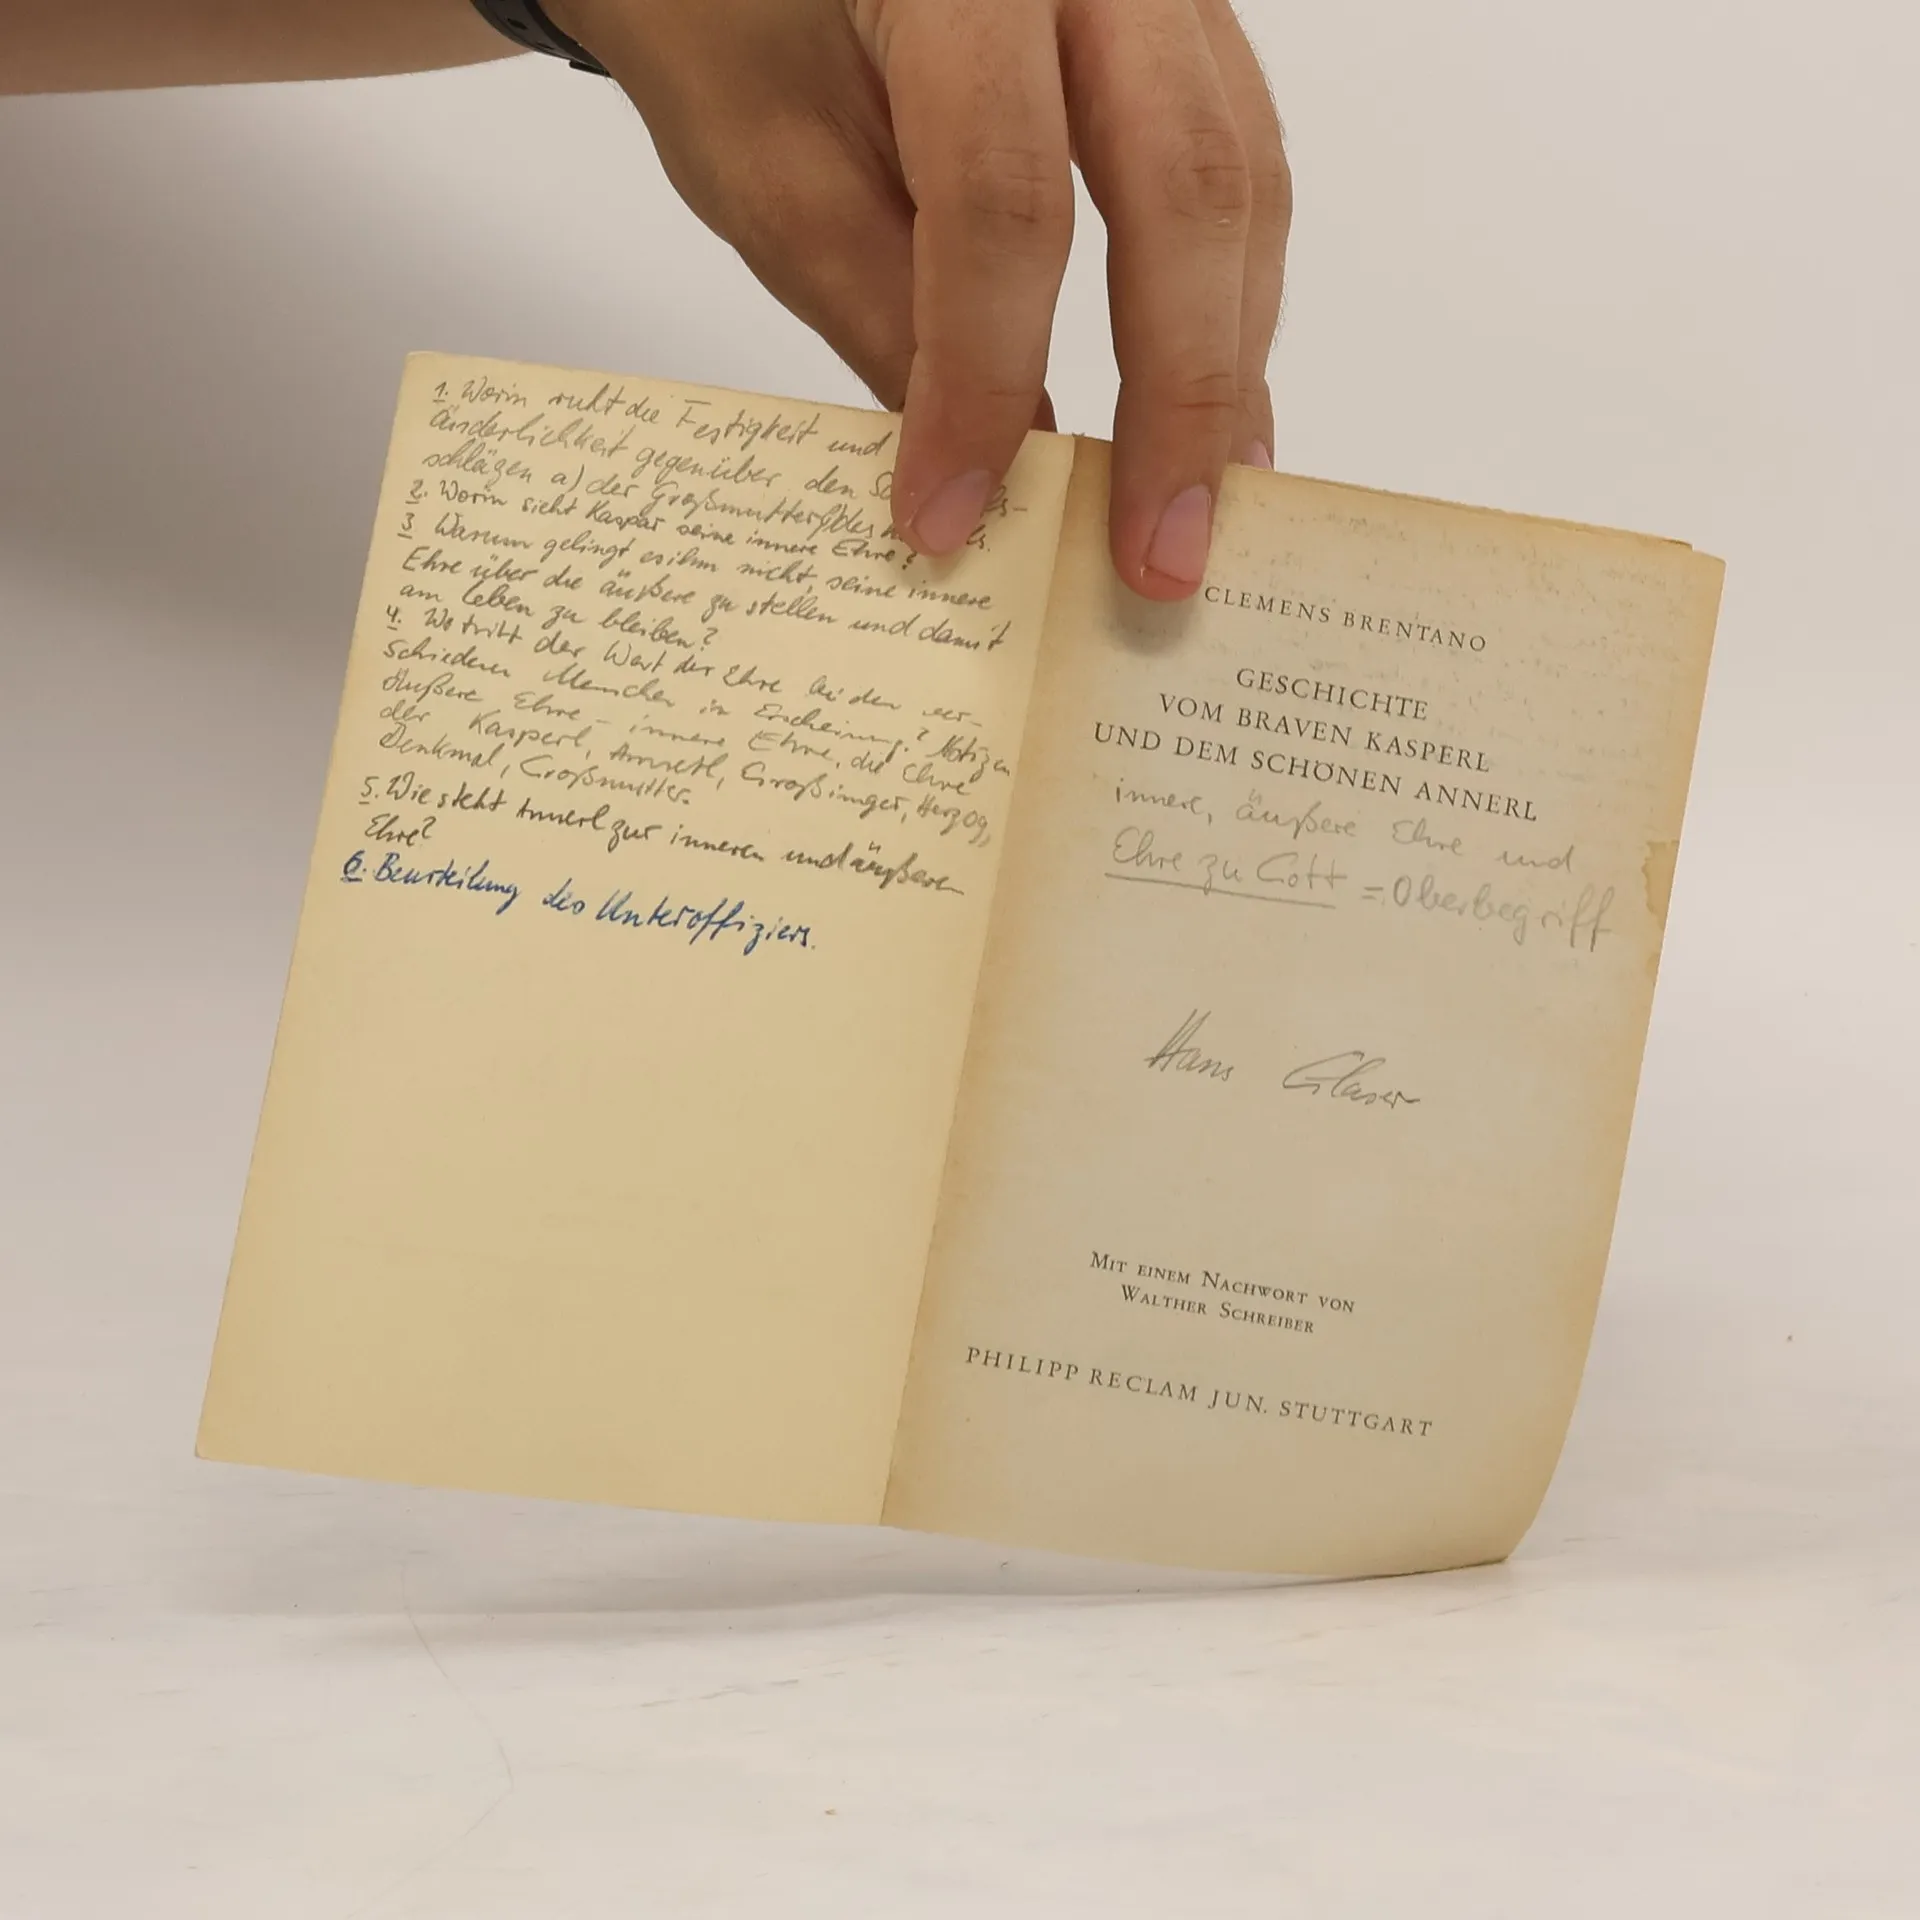 1. Worin ruht die Festigkeit und
änderlichkeit gegenüber den
schlägen a) der Großmutter des
2. Worin sieht Kaspar seine innere Ehre?
3 Warum gelingt es ihm nicht, seine innere
Ehre über die äußere zu stellen und damit
am Leben zu bleiben?
4. Wo tritt der Wert der Ehre bei den ver-
schiedenen Menschen in Erscheinung? Notizen
äußere Ehre – innere Ehre, die Ehre
der Kasperl, Annerl, Großinger, Herzog,
Denkmal, Großmutter.
5. Wie steht Annerl zur inneren und äußeren
Ehre?
6. Beurteilung des Unteroffiziers.
CLEMENS BRENTANO
GESCHICHTE
VOM BRAVEN KASPERL
UND DEM SCHÖNEN ANNERL
innere, äußere Ehre und
Ehre zu Gott = Oberbegriff
Hans Glaser
MIT EINEM NACHWORT VON
WALTHER SCHREIBER
PHILIPP RECLAM JUN. STUTTGART